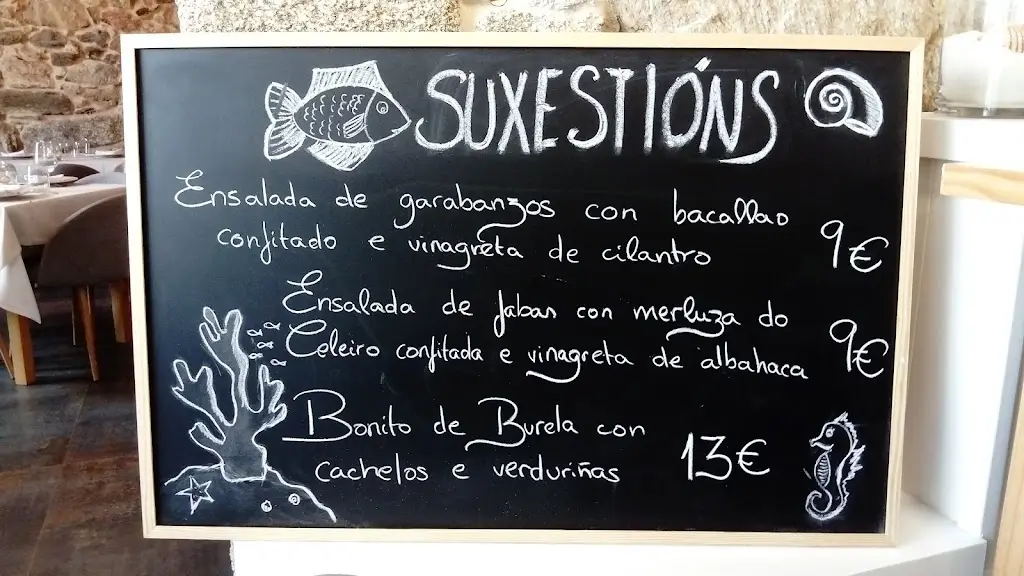 SUXESTIÓNS
Ensalada de garabanzos con bacallao
confitado e vinagreta de cilantro 9€
Ensalada de fabas con merluza do
Celeiro confitada e vinagreta de albahaca 9€
Bonito de Burela con
cachelos e verduriñas 13€